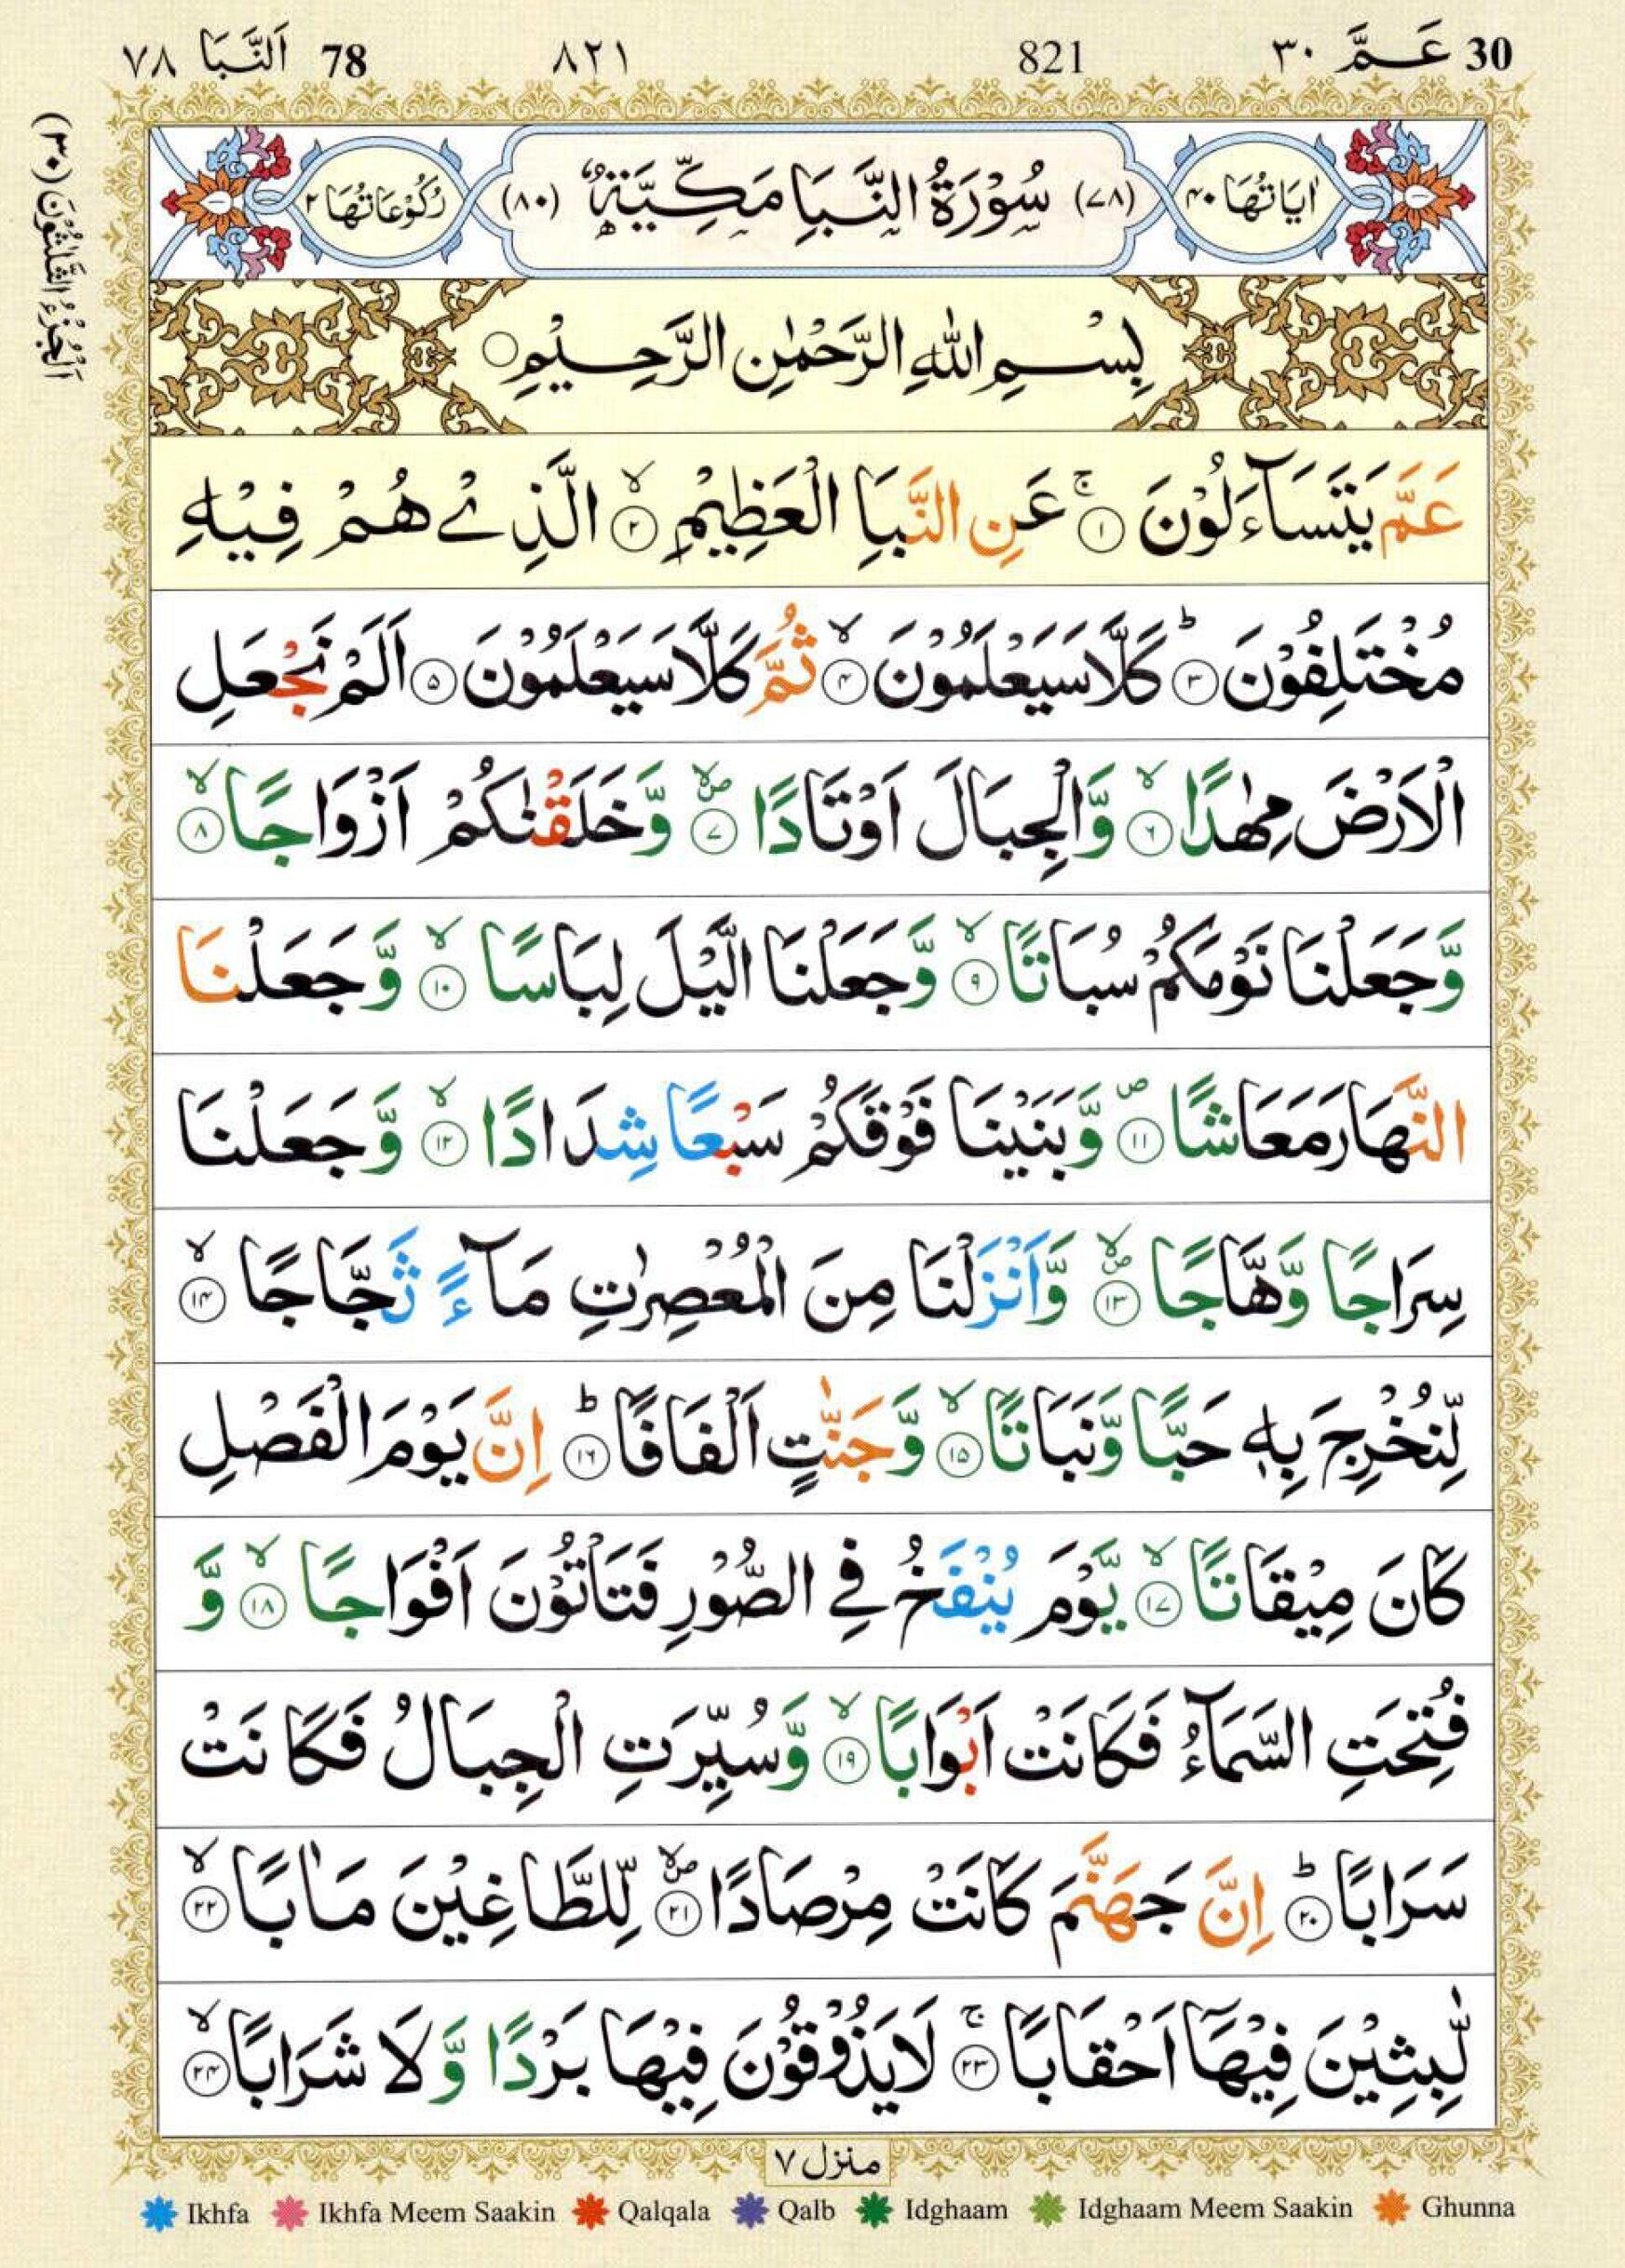 30 عَمَّ ٣٠ 821 ٨٢١ 78 اَلنَّبَا ٧٨
اَلْجُزْءُ الثَّلٰثُوْنَ (٣٠)
اٰيَاتُهَا ٤٠ (٧٨) سُوْرَةُ النَّبَاِ مَكِّيَّةٌ (٨٠) رُكُوْعَاتُهَا ٢
بِسْمِ اللّٰهِ الرَّحْمٰنِ الرَّحِيْمِ ○
عَمَّ يَتَسَآءَلُوْنَ ۚ ١ عَنِ النَّبَاِ الْعَظِيْمِ ۙ ٢ الَّذِىْ هُمْ فِيْهِ
مُخْتَلِفُوْنَ ؕ ٣ كَلَّا سَيَعْلَمُوْنَ ۙ ٤ ثُمَّ كَلَّا سَيَعْلَمُوْنَ ٥ اَلَمْ نَجْعَلِ
الْاَرْضَ مِهٰدًا ۙ ٦ وَّالْجِبَالَ اَوْتَادًا ۪ۙ ٧ وَّخَلَقْنٰكُمْ اَزْوَاجًا ۙ ٨
وَّجَعَلْنَا نَوْمَكُمْ سُبَاتًا ۙ ٩ وَّجَعَلْنَا الَّيْلَ لِبَاسًا ۙ ١٠ وَّجَعَلْنَا
النَّهَارَ مَعَاشًا ۪ ١١ وَّبَنَيْنَا فَوْقَكُمْ سَبْعًا شِدَادًا ۙ ١٢ وَّجَعَلْنَا
سِرَاجًا وَّهَّاجًا ۪ۙ ١٣ وَّاَنْزَلْنَا مِنَ الْمُعْصِرٰتِ مَآءً ثَجَّاجًا ۙ ١٤
لِّنُخْرِجَ بِهٖ حَبًّا وَّنَبَاتًا ۙ ١٥ وَّجَنّٰتٍ اَلْفَافًا ؕ ١٦ اِنَّ يَوْمَ الْفَصْلِ
كَانَ مِيْقَاتًا ۙ ١٧ يَّوْمَ يُنْفَخُ فِى الصُّوْرِ فَتَاْتُوْنَ اَفْوَاجًا ۙ ١٨ وَّ
فُتِحَتِ السَّمَآءُ فَكَانَتْ اَبْوَابًا ۙ ١٩ وَّسُيِّرَتِ الْجِبَالُ فَكَانَتْ
سَرَابًا ؕ ٢٠ اِنَّ جَهَنَّمَ كَانَتْ مِرْصَادًا ۪ۙ ٢١ لِّلطَّاغِيْنَ مَاٰبًا ۙ ٢٢
لّٰبِثِيْنَ فِيْهَاۤ اَحْقَابًا ۚ ٢٣ لَا يَذُوْقُوْنَ فِيْهَا بَرْدًا وَّلَا شَرَابًا ۙ ٢٤
منزل ٧
Ikhfa Ikhfa Meem Saakin Qalqala Qalb Idghaam Idghaam Meem Saakin Ghunna